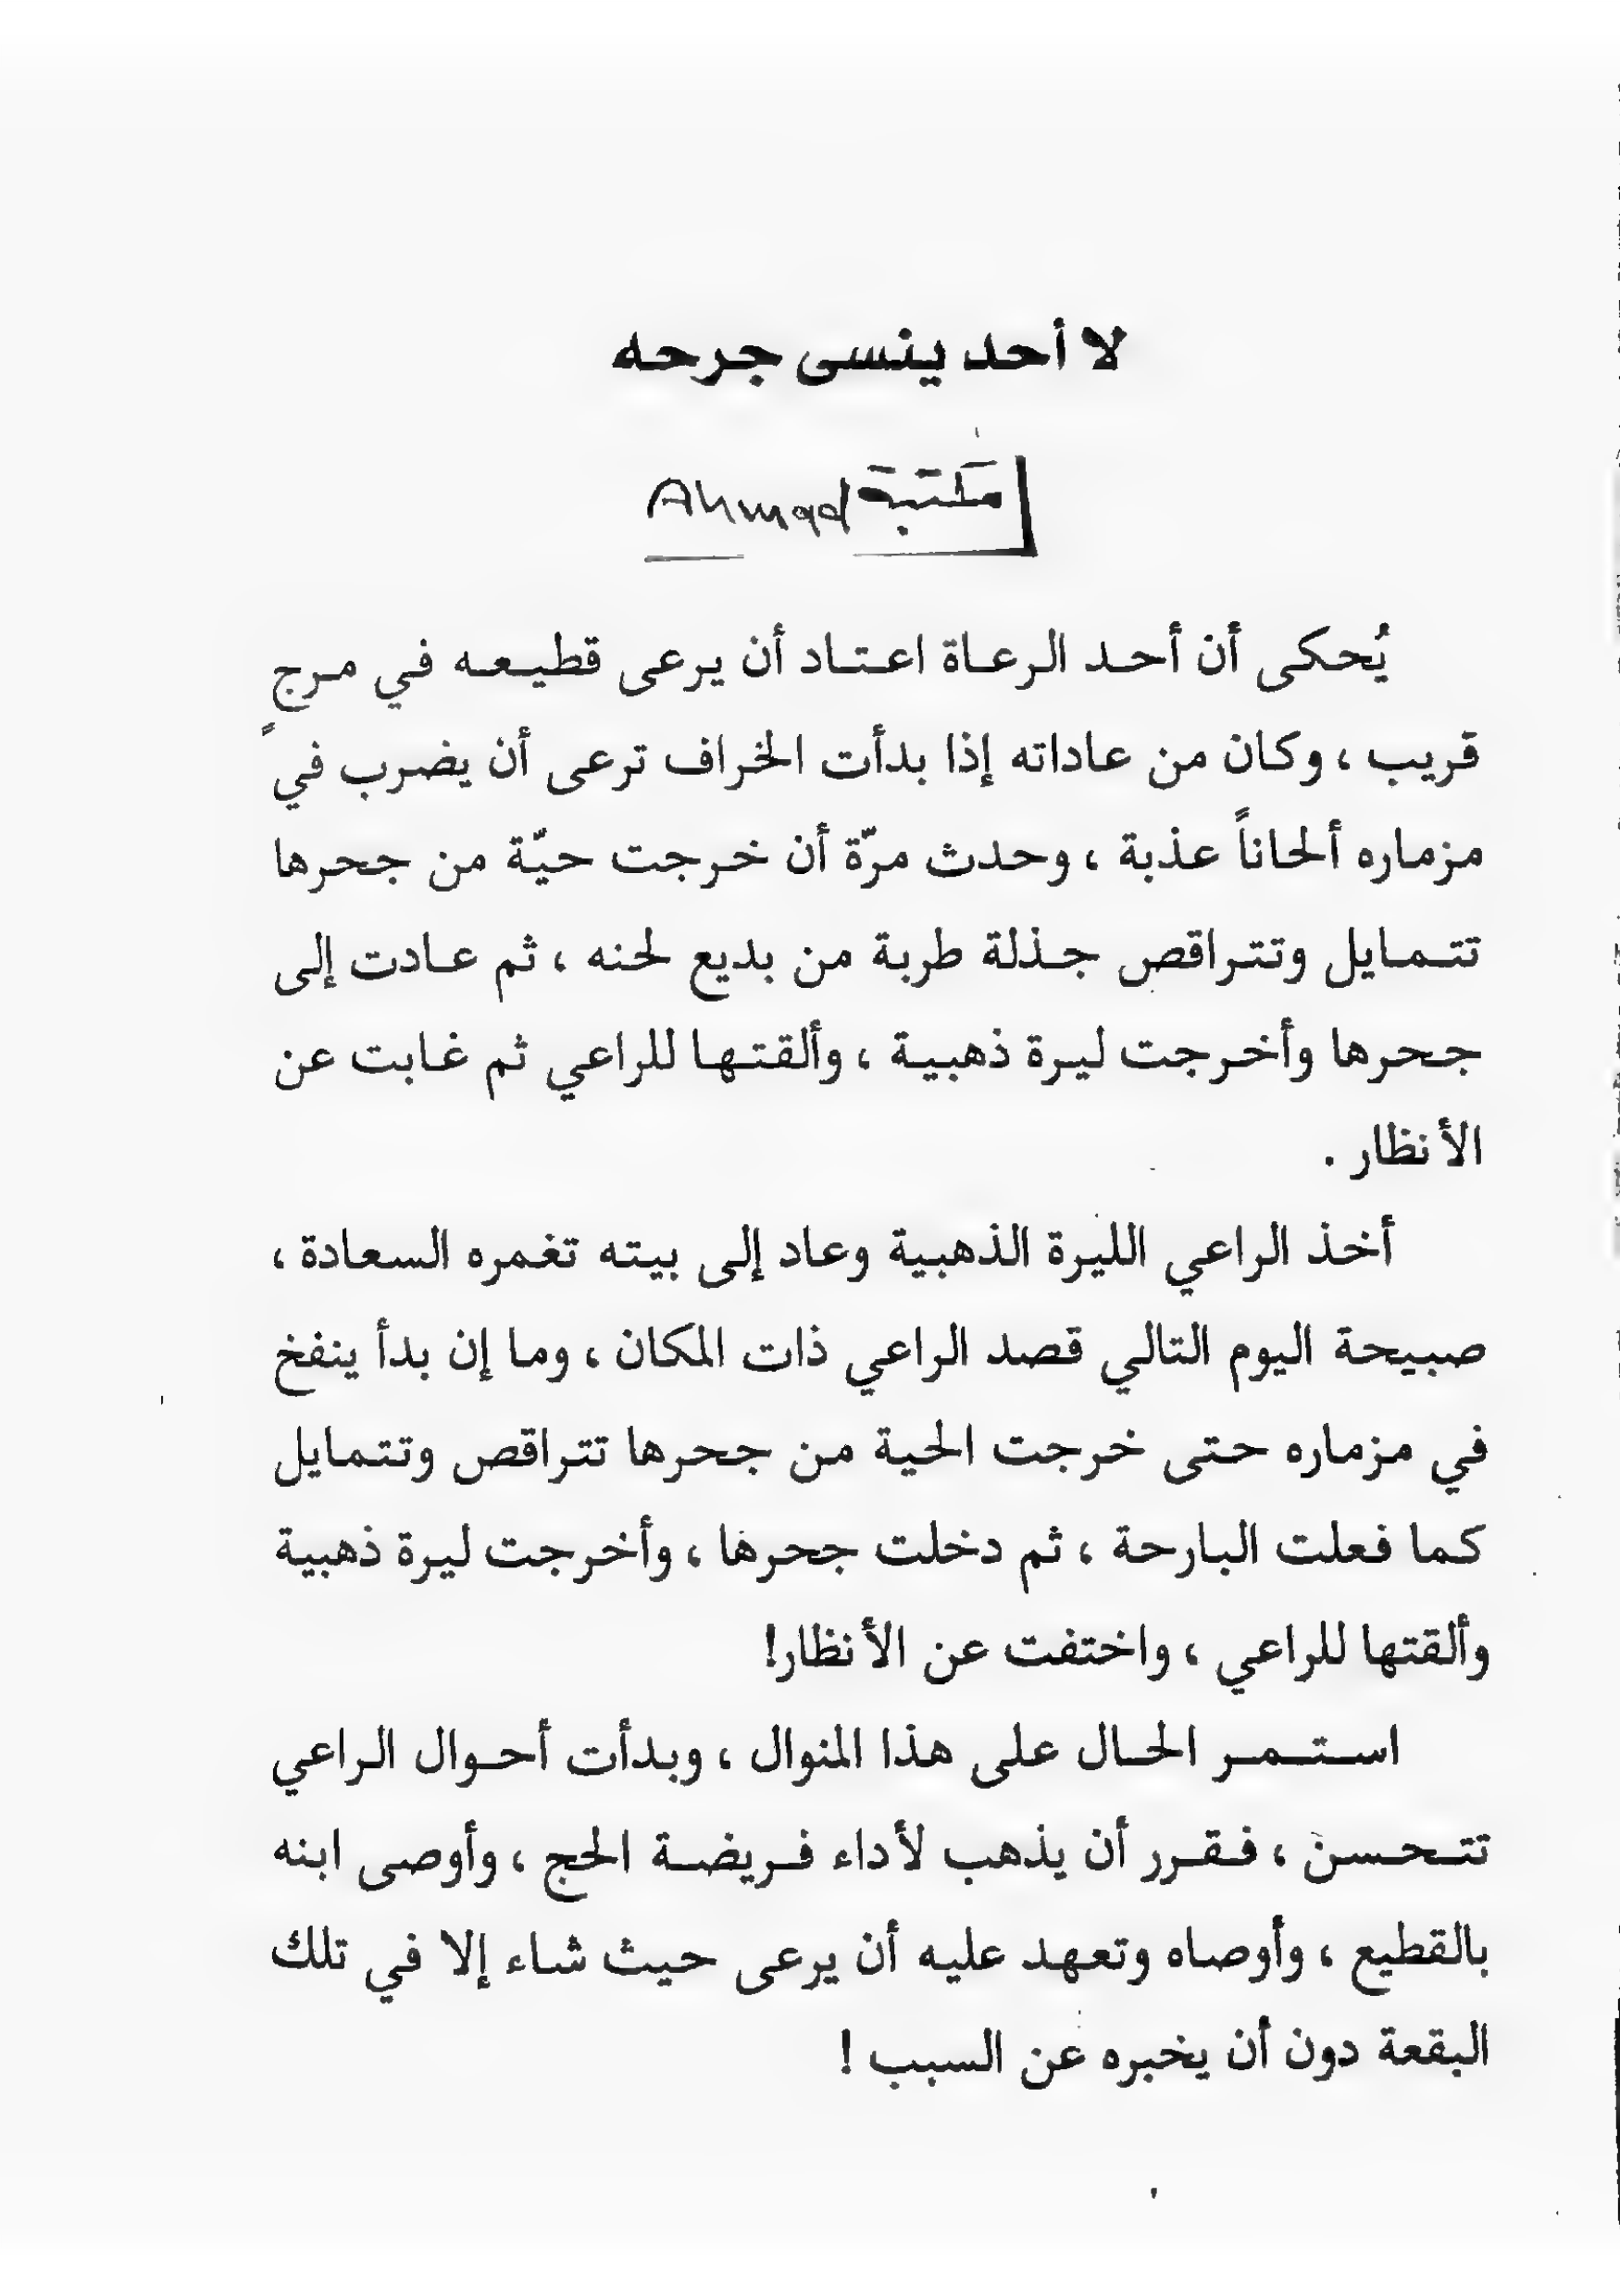 لا أحد ينسى جرحه
مكتبة Ahmad
يُحكى أن أحد الرعاة اعتاد أن يرعى قطيعه في مرج
قريب ، وكان من عاداته إذا بدأت الخراف ترعى أن يضرب في
مزماره ألحاناً عذبة ، وحدث مرّة أن خرجت حيّة من جحرها
تتمايل وتتراقص جذلة طربة من بديع لحنه ، ثم عادت إلى
جحرها وأخرجت ليرة ذهبية ، وألقتها للراعي ثم غابت عن
الأنظار .
أخذ الراعي الليرة الذهبية وعاد إلى بيته تغمره السعادة ،
صبيحة اليوم التالي قصد الراعي ذات المكان ، وما إن بدأ ينفخ
في مزماره حتى خرجت الحية من جحرها تتراقص وتتمايل
كما فعلت البارحة ، ثم دخلت جحرها ، وأخرجت ليرة ذهبية
وألقتها للراعي ، واختفت عن الأنظار!
استمر الحال على هذا المنوال ، وبدأت أحوال الراعي
تتحسن ، فقرر أن يذهب لأداء فريضة الحج ، وأوصى ابنه
بالقطيع ، وأوصاه وتعهد عليه أن يرعى حيث شاء إلا في تلك
البقعة دون أن يخبره عن السبب !